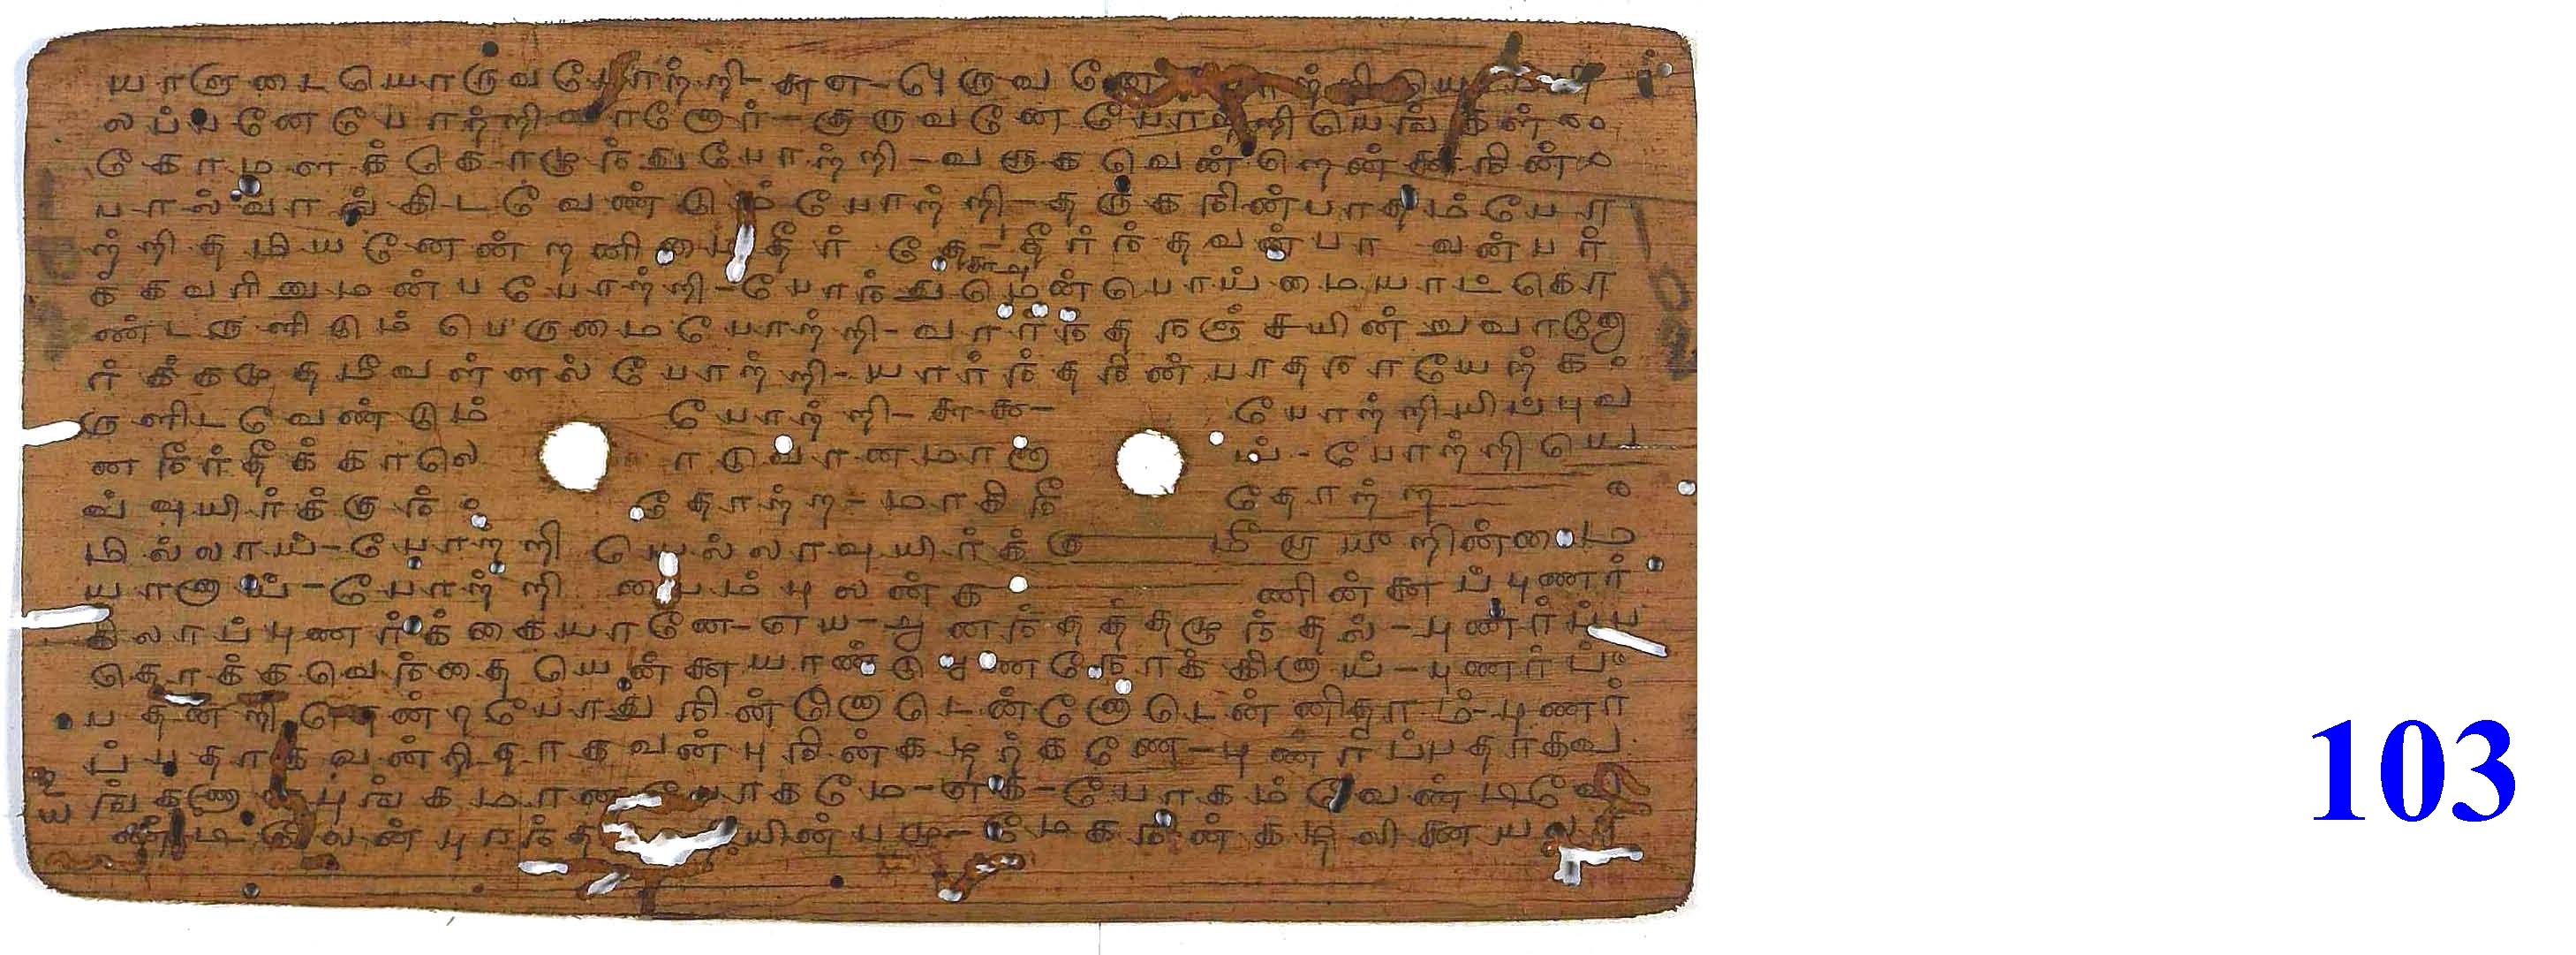 யாளுடையொருவபோற்றி-சுள-ஒருவனே போற்றியொ
லப்பனேபோற்றிவானோர்-குருவனேபோற்றியெங்கள்
கோமளக்கொழுந்துபோற்றி-வருகவென்றென்னைநின்
பால்வாங்கிடவேண்டும்போற்றி-தருகநின்பாதம்போ
ற்றிதமியனேன்றனிமைதீர் தே-தீர்ந்தவன்பா வன்பர்
க்கவரினுமன்பபோற்றி-போந்துமென்பொய்மையாட்கொ
ண்டருளிடும் பெருமைபோற்றி-வார்ந்தநஞ்சயின்றுவானோ
ர்க்கமுதமீவள்ளல்போற்றி-யார்ந்தநின்பாதநாயேற்க
ருளிடவேண்டும் போற்றி-சுக- போற்றியிப்புவ
னநீர்தீக்காலெ ாடுவானமானா ய்-போற்றியெ
வ்வுயிர்க்குந் தோற்ற-மாகிநீ தோற்ற
மில்லாய்-போற்றி யெல்லாவுயிர்க்கு மீறாயீறின்மை
யானாய்-போற்றி யைம்புலன்க ணின்னைப்புணர்
கிலாப்புணர்க்கையானே-எய- அனந்தத்தழுந்தல்-புணர்ப்ப
தொக்கவெந்தை யென்னையாண்டுபூணநோக்கினாய்-புணர்ப்
பதன்றிதென்றபோதுநின்னொடென்னொடென்னிதாம்-புணர்
ப்பதாகவன்றிதாகவன்புநின்கழற்கணே-புணர்ப்பதாகவ
ங்கணாளபுங்கமானபோகமே-எக-போகம்வேண்டிவே
ண்டிலேன்புரந்த யின்பமு-மேகநின்கழலிணையலா